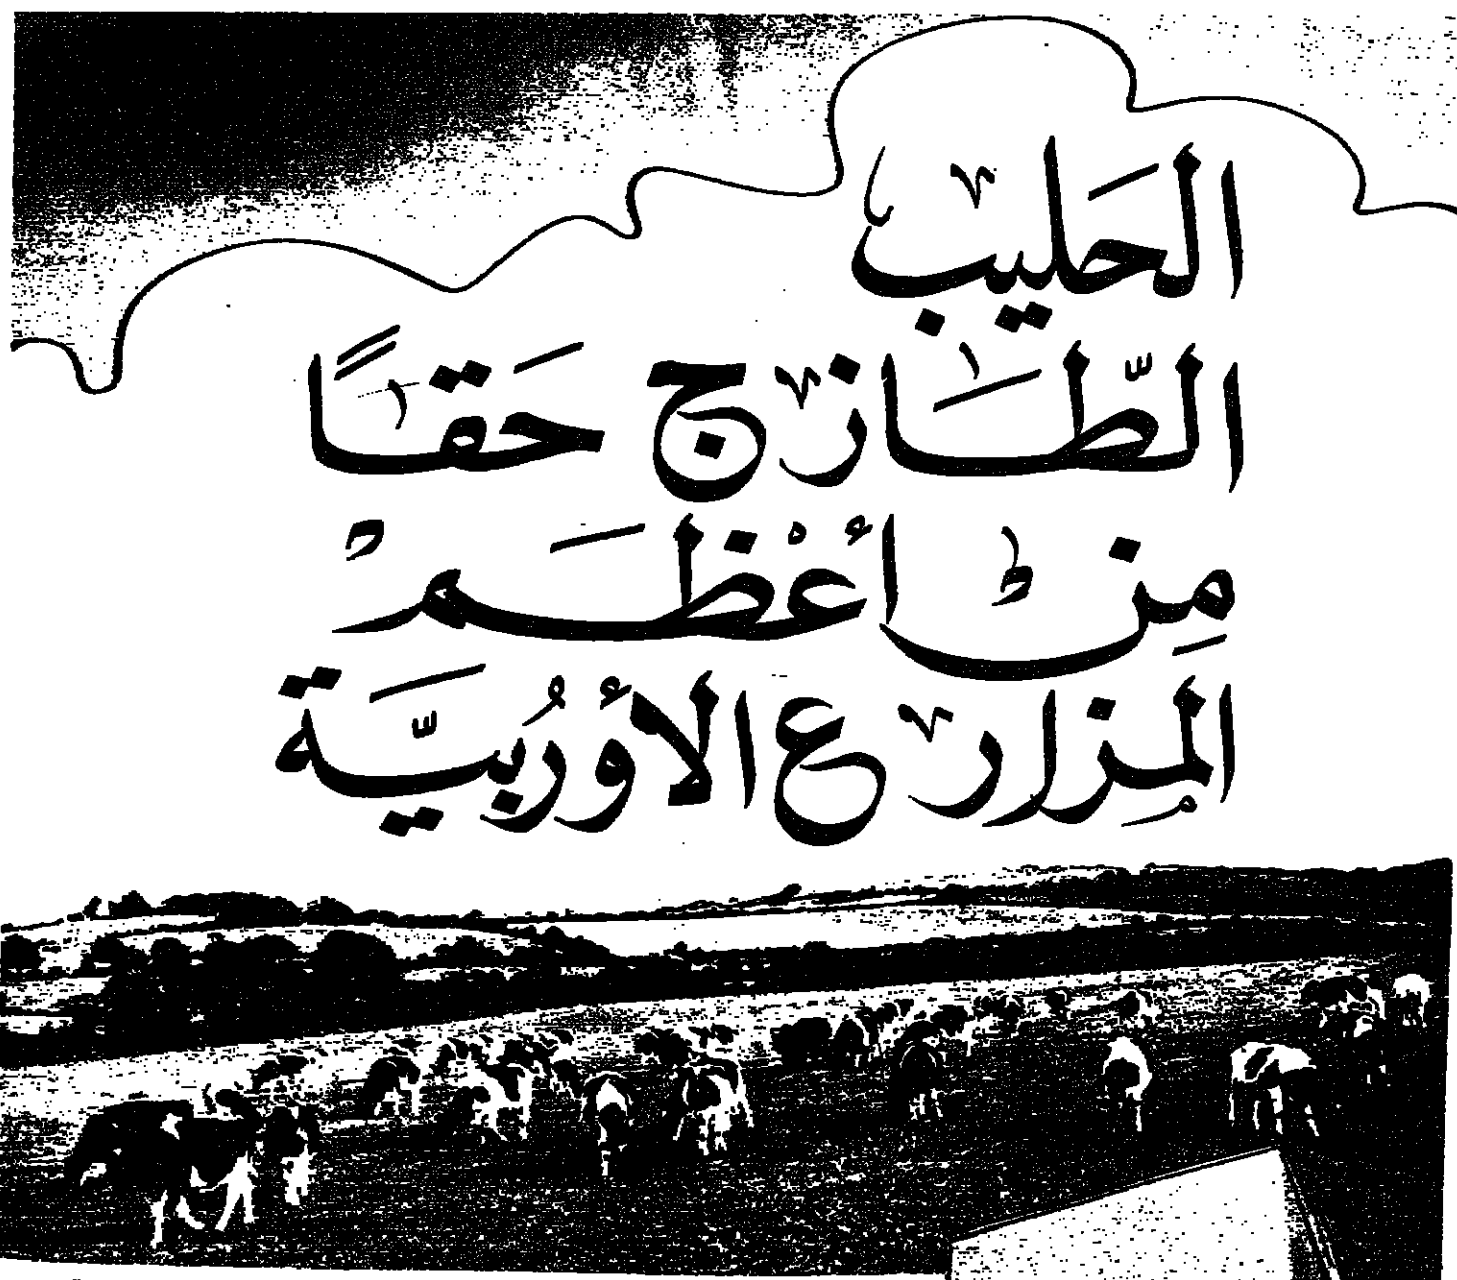 الحَليب
الطَّازج حَقاً
مِنْ أعْظَمْ
المزارع الأورُبيَّة